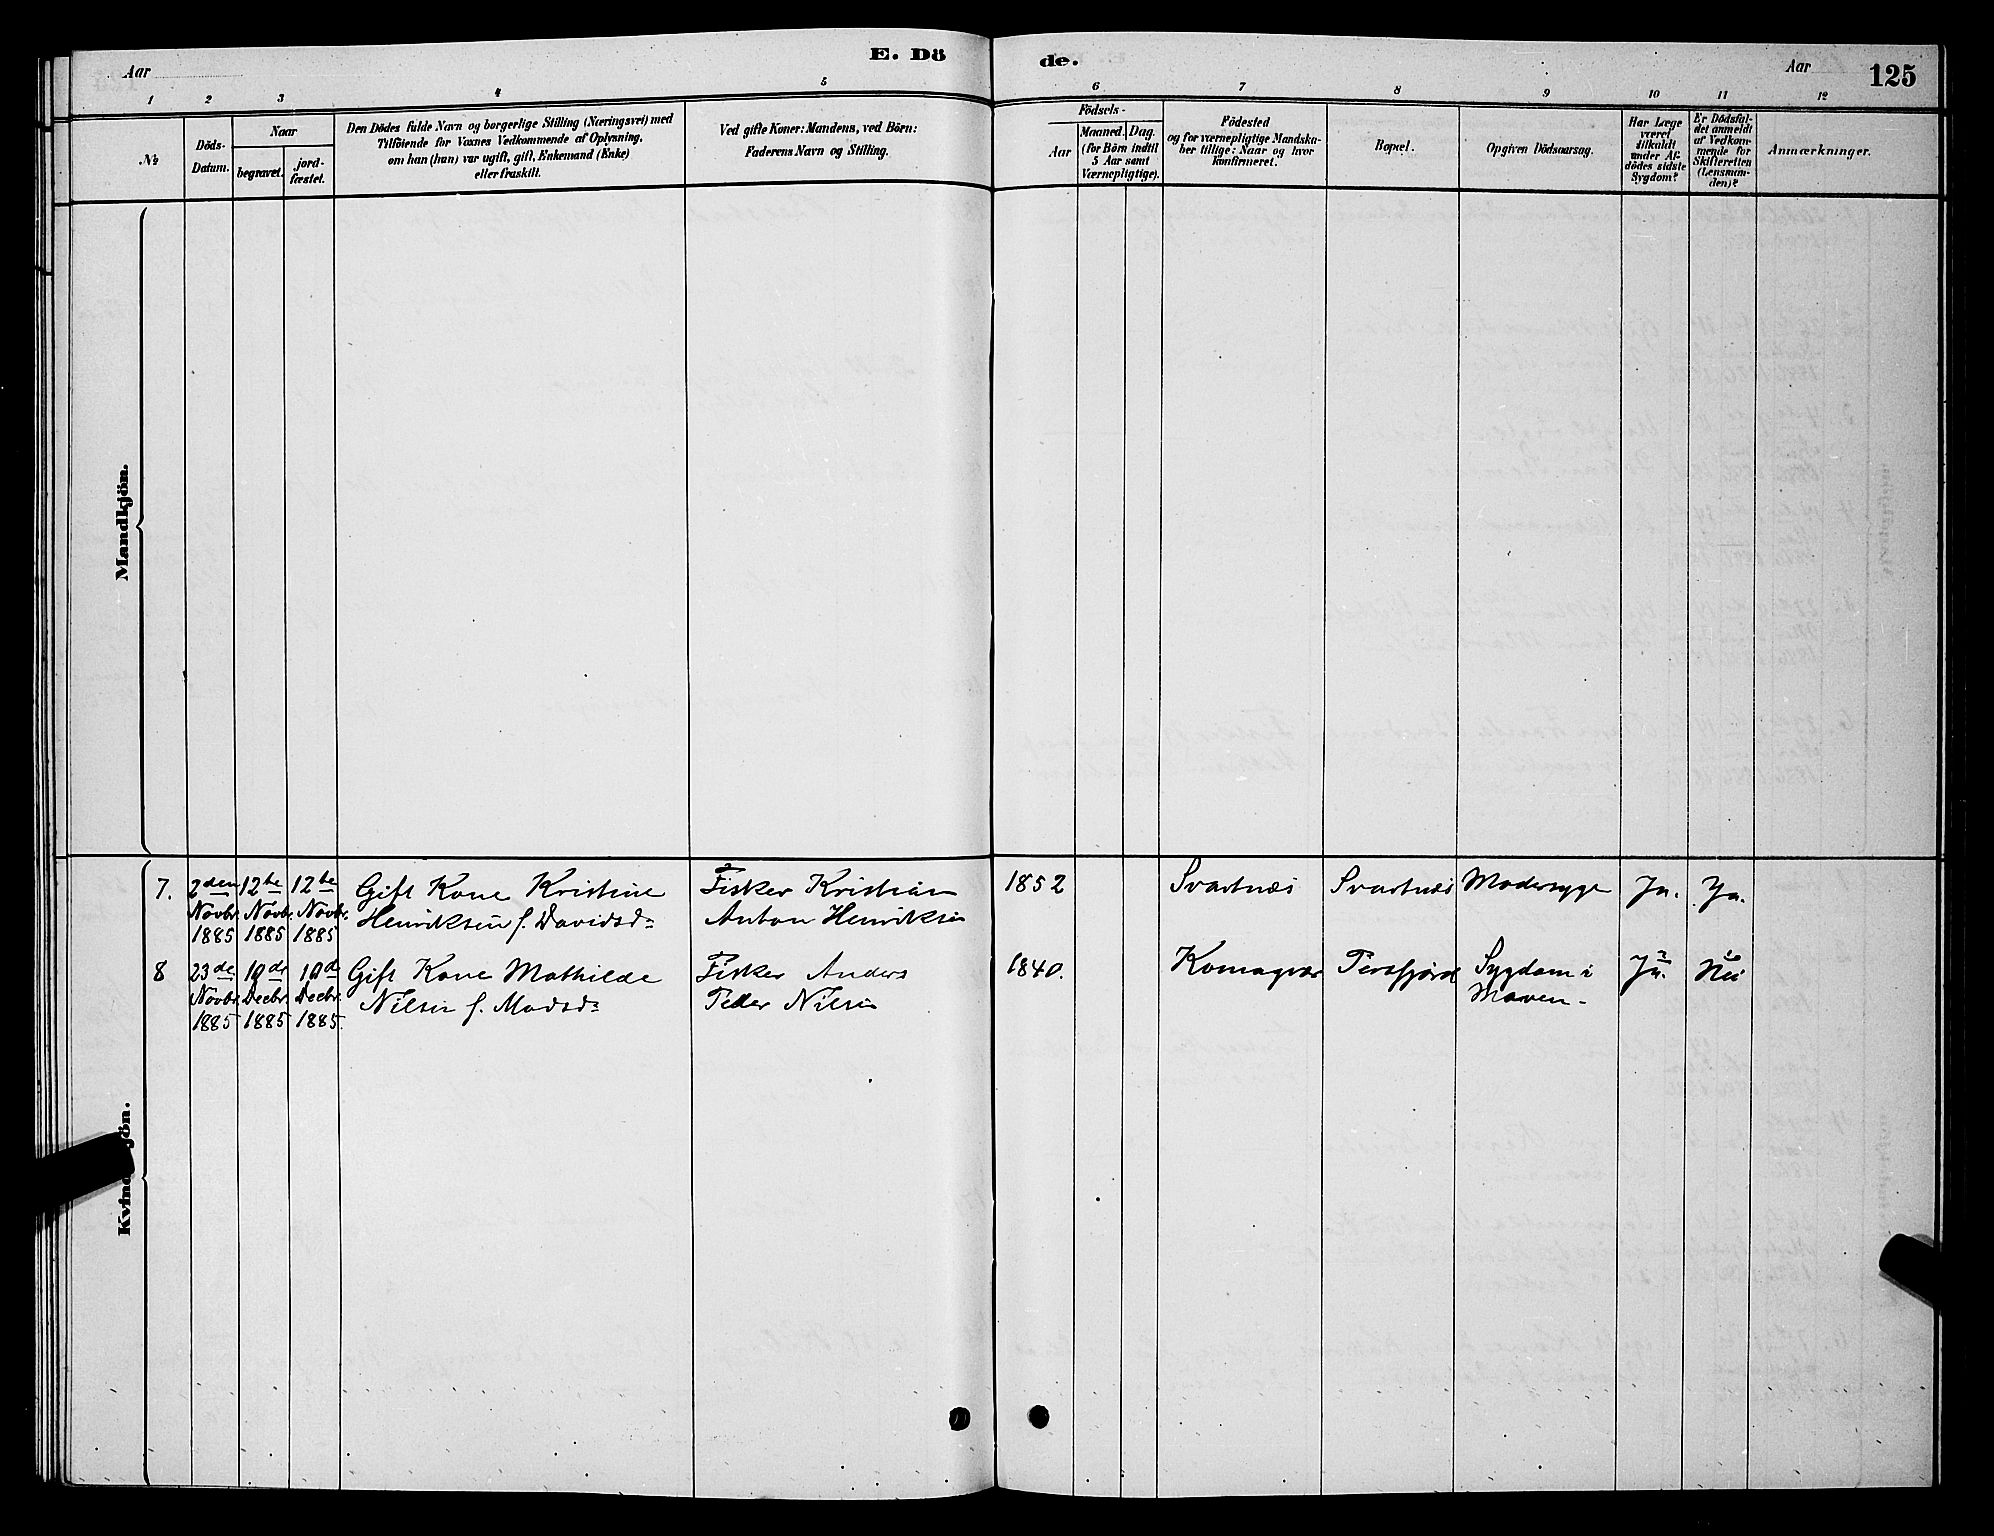 Aar
E. Dö
de.
Aar
125
1 2 3 4 5 6 7 8 9 10 11 12
No
Döds-
Datum.
Naar
begravet.
jord-
fæstet.
Den Dödes fulde Navn og borgerlige Stilling (Næringsvei) med
Tilföiende for Voxnes Vedkommende af Oplysning,
om han (hun) var ugift, gift, Enkemand (Enke)
eller fraskilt.
Ved gifte Koner: Mandens, ved Börn:
Faderens Navn og Stilling.
Födsels-
Aar
Maaned. Dag.
(for Börn indtil
5 Aar samt
Værnepligtige).
Födested
og for værnepligtige Mandska-
ber tillige: Naar og hvor
konfirmeret.
Bopæl.
Opgiven Dödsaarsag.
Har Læge
været
tilkaldt
under Af-
dödes sidste
Sygdom?
Er Dödsfal-
det anmeldt
af Vedkom-
mende for
Skifteretten
(Lensman-
den)?
Anmærkninger.
Mandkjön.
7. 2den Novbr. 1885
12te Novbr. 1885
12te Novbr. 1885
Gift Kone Kristine
Henriksen f. Davidsd.
Fisker Kristian
Anton Henriksen
1852
Svartnæs
Svartnæs
Modersyge
Ja.
Ja.
8 23de Novbr. 1885
10de Decbr. 1885
10de Decbr. 1885.
Gift Kone Mathilde
Nilsen f. Madsd.
Fisker Anders
Peder Nilsen
1840.
Komagvær
Persfjord
Sygdom i
Maven-
Ja.
Nei